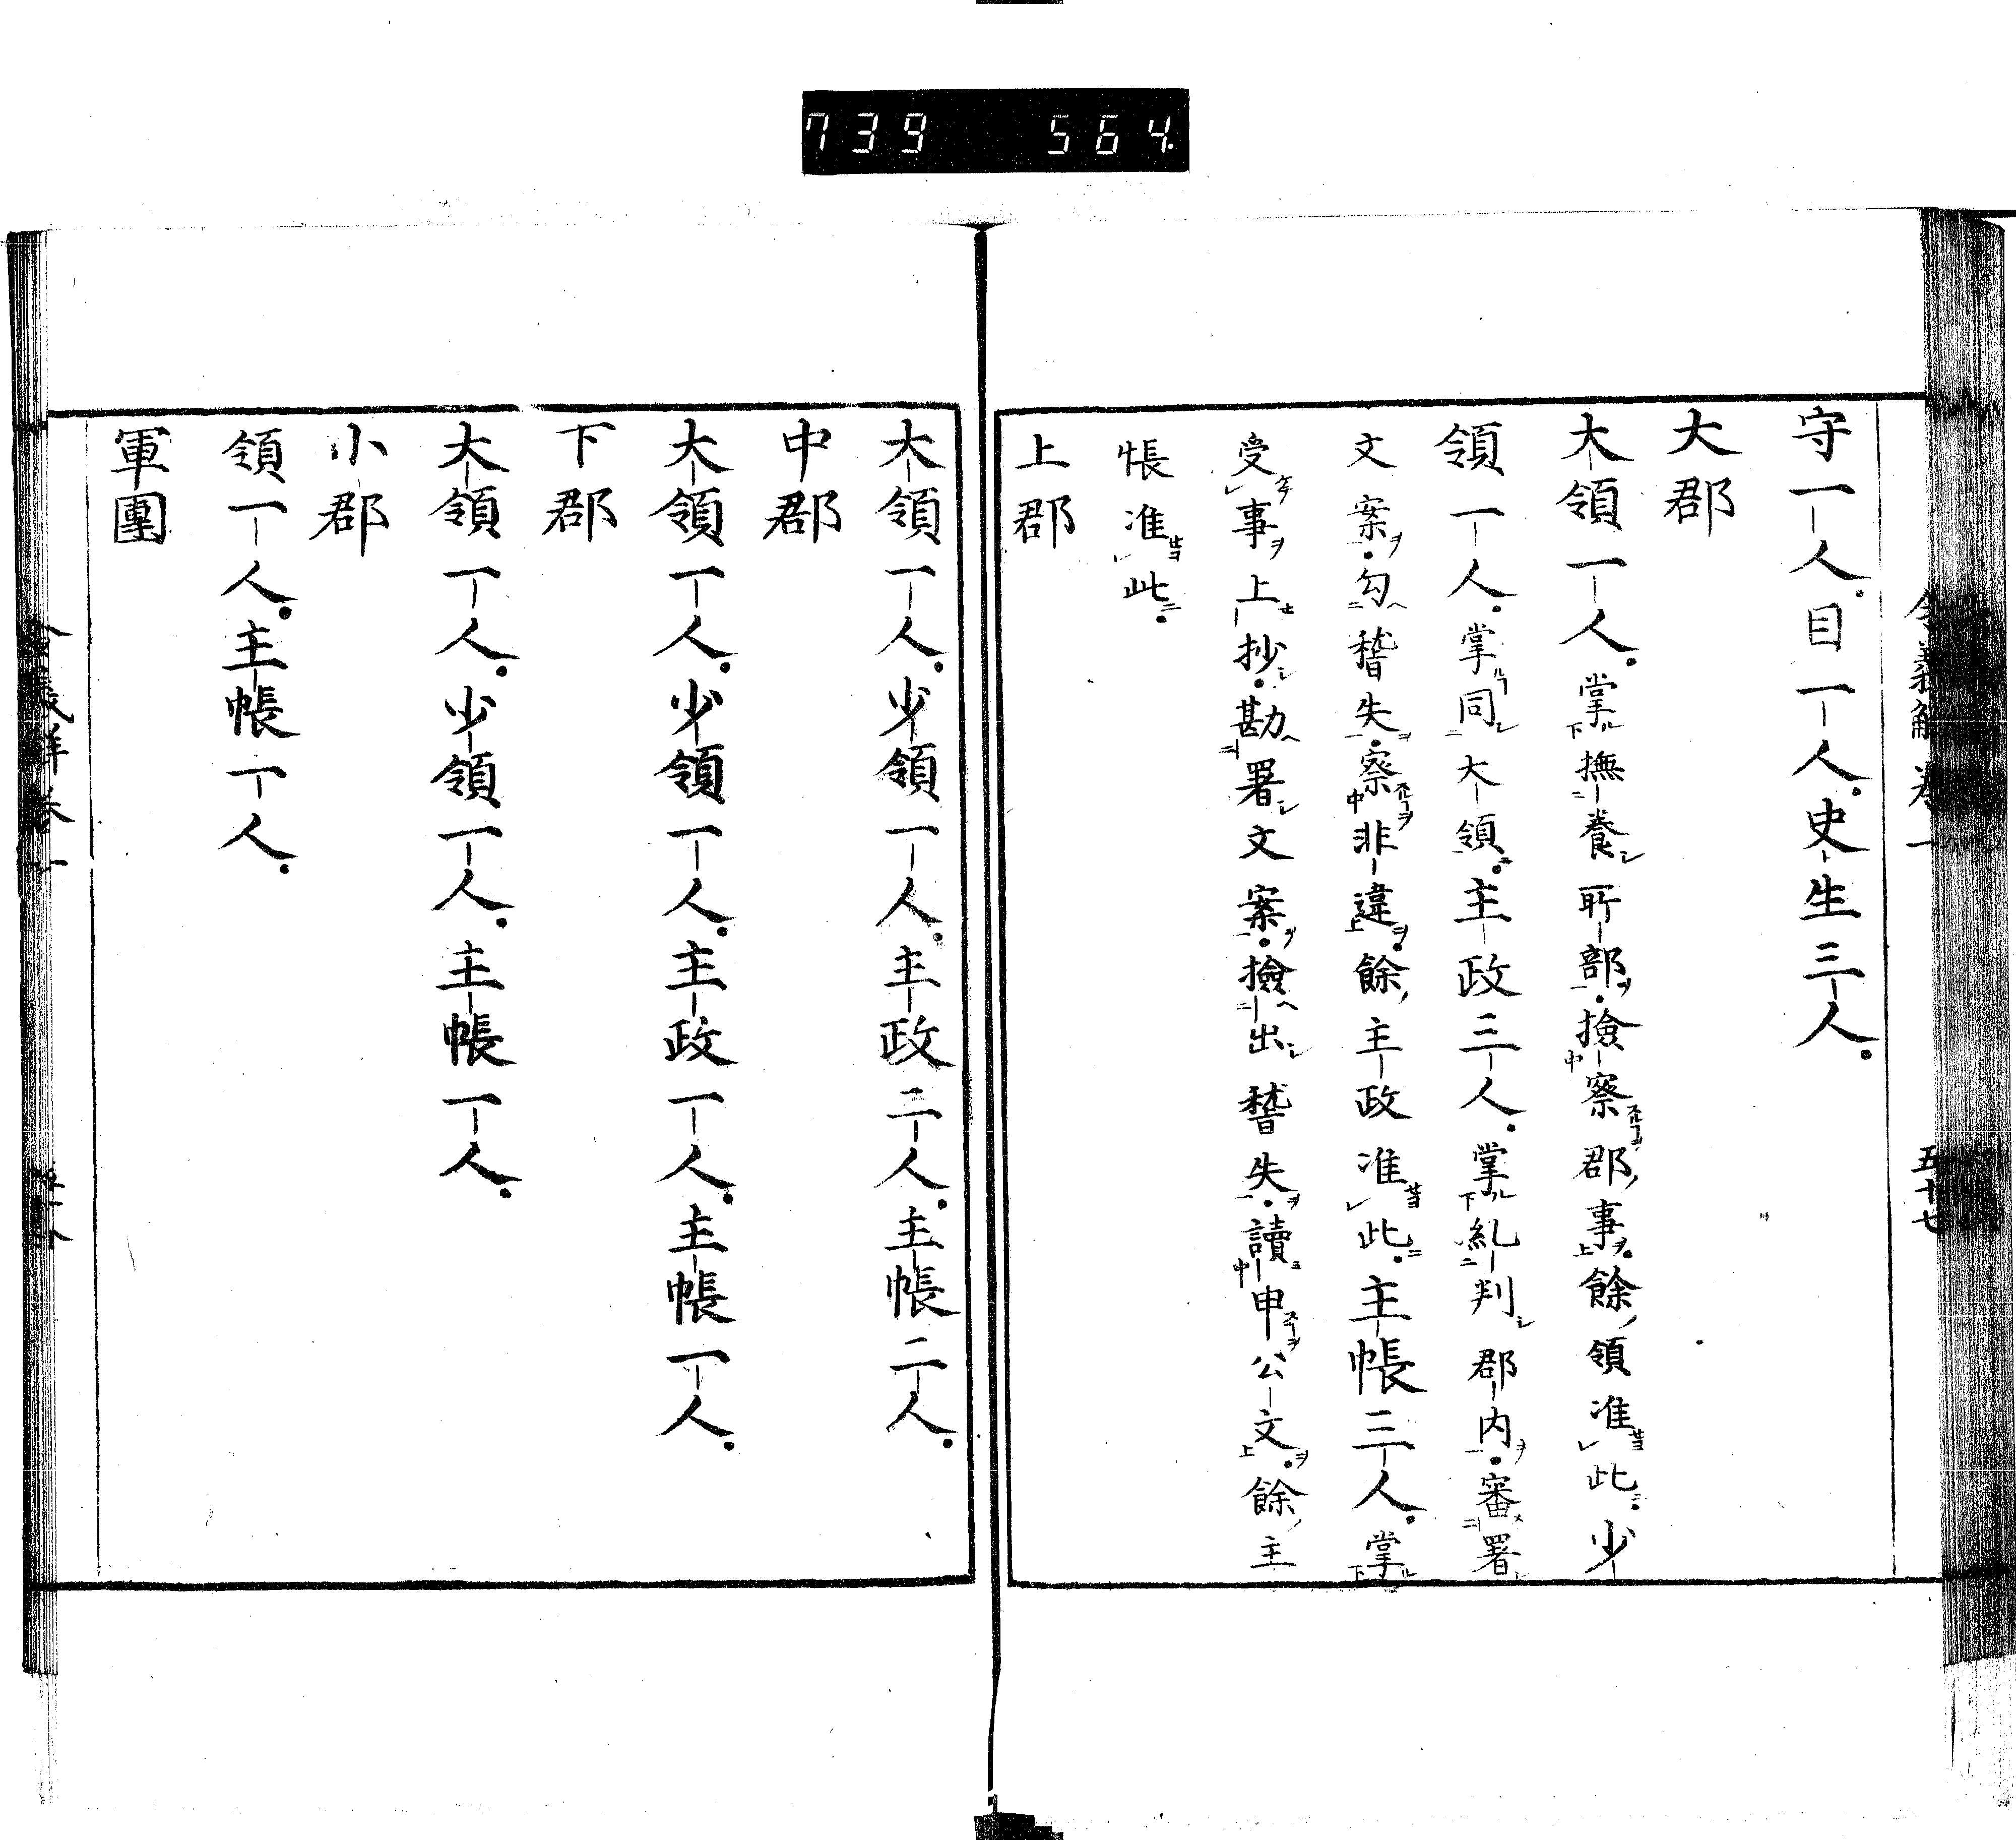 739 564.
令義解 卷一 五十七
守一人。目一人。史生三人。
大郡
大領一人。掌撫養所部。撿察郡事。餘領准此。少
領一人。掌同大領。主政三人。掌糺判郡內。審署
文案。勾稽失。察非違。餘主政准此。主帳三人。掌
受事上抄。勘署文案。撿出稽失。讀申公文。餘主
帳准此。
上郡
大領一人。少領一人。主政二人。主帳二人。
中郡
大領一人。少領一人。主政一人。主帳一人。
下郡
大領一人。少領一人。主帳一人。
小郡
領一人。主帳一人。
軍團